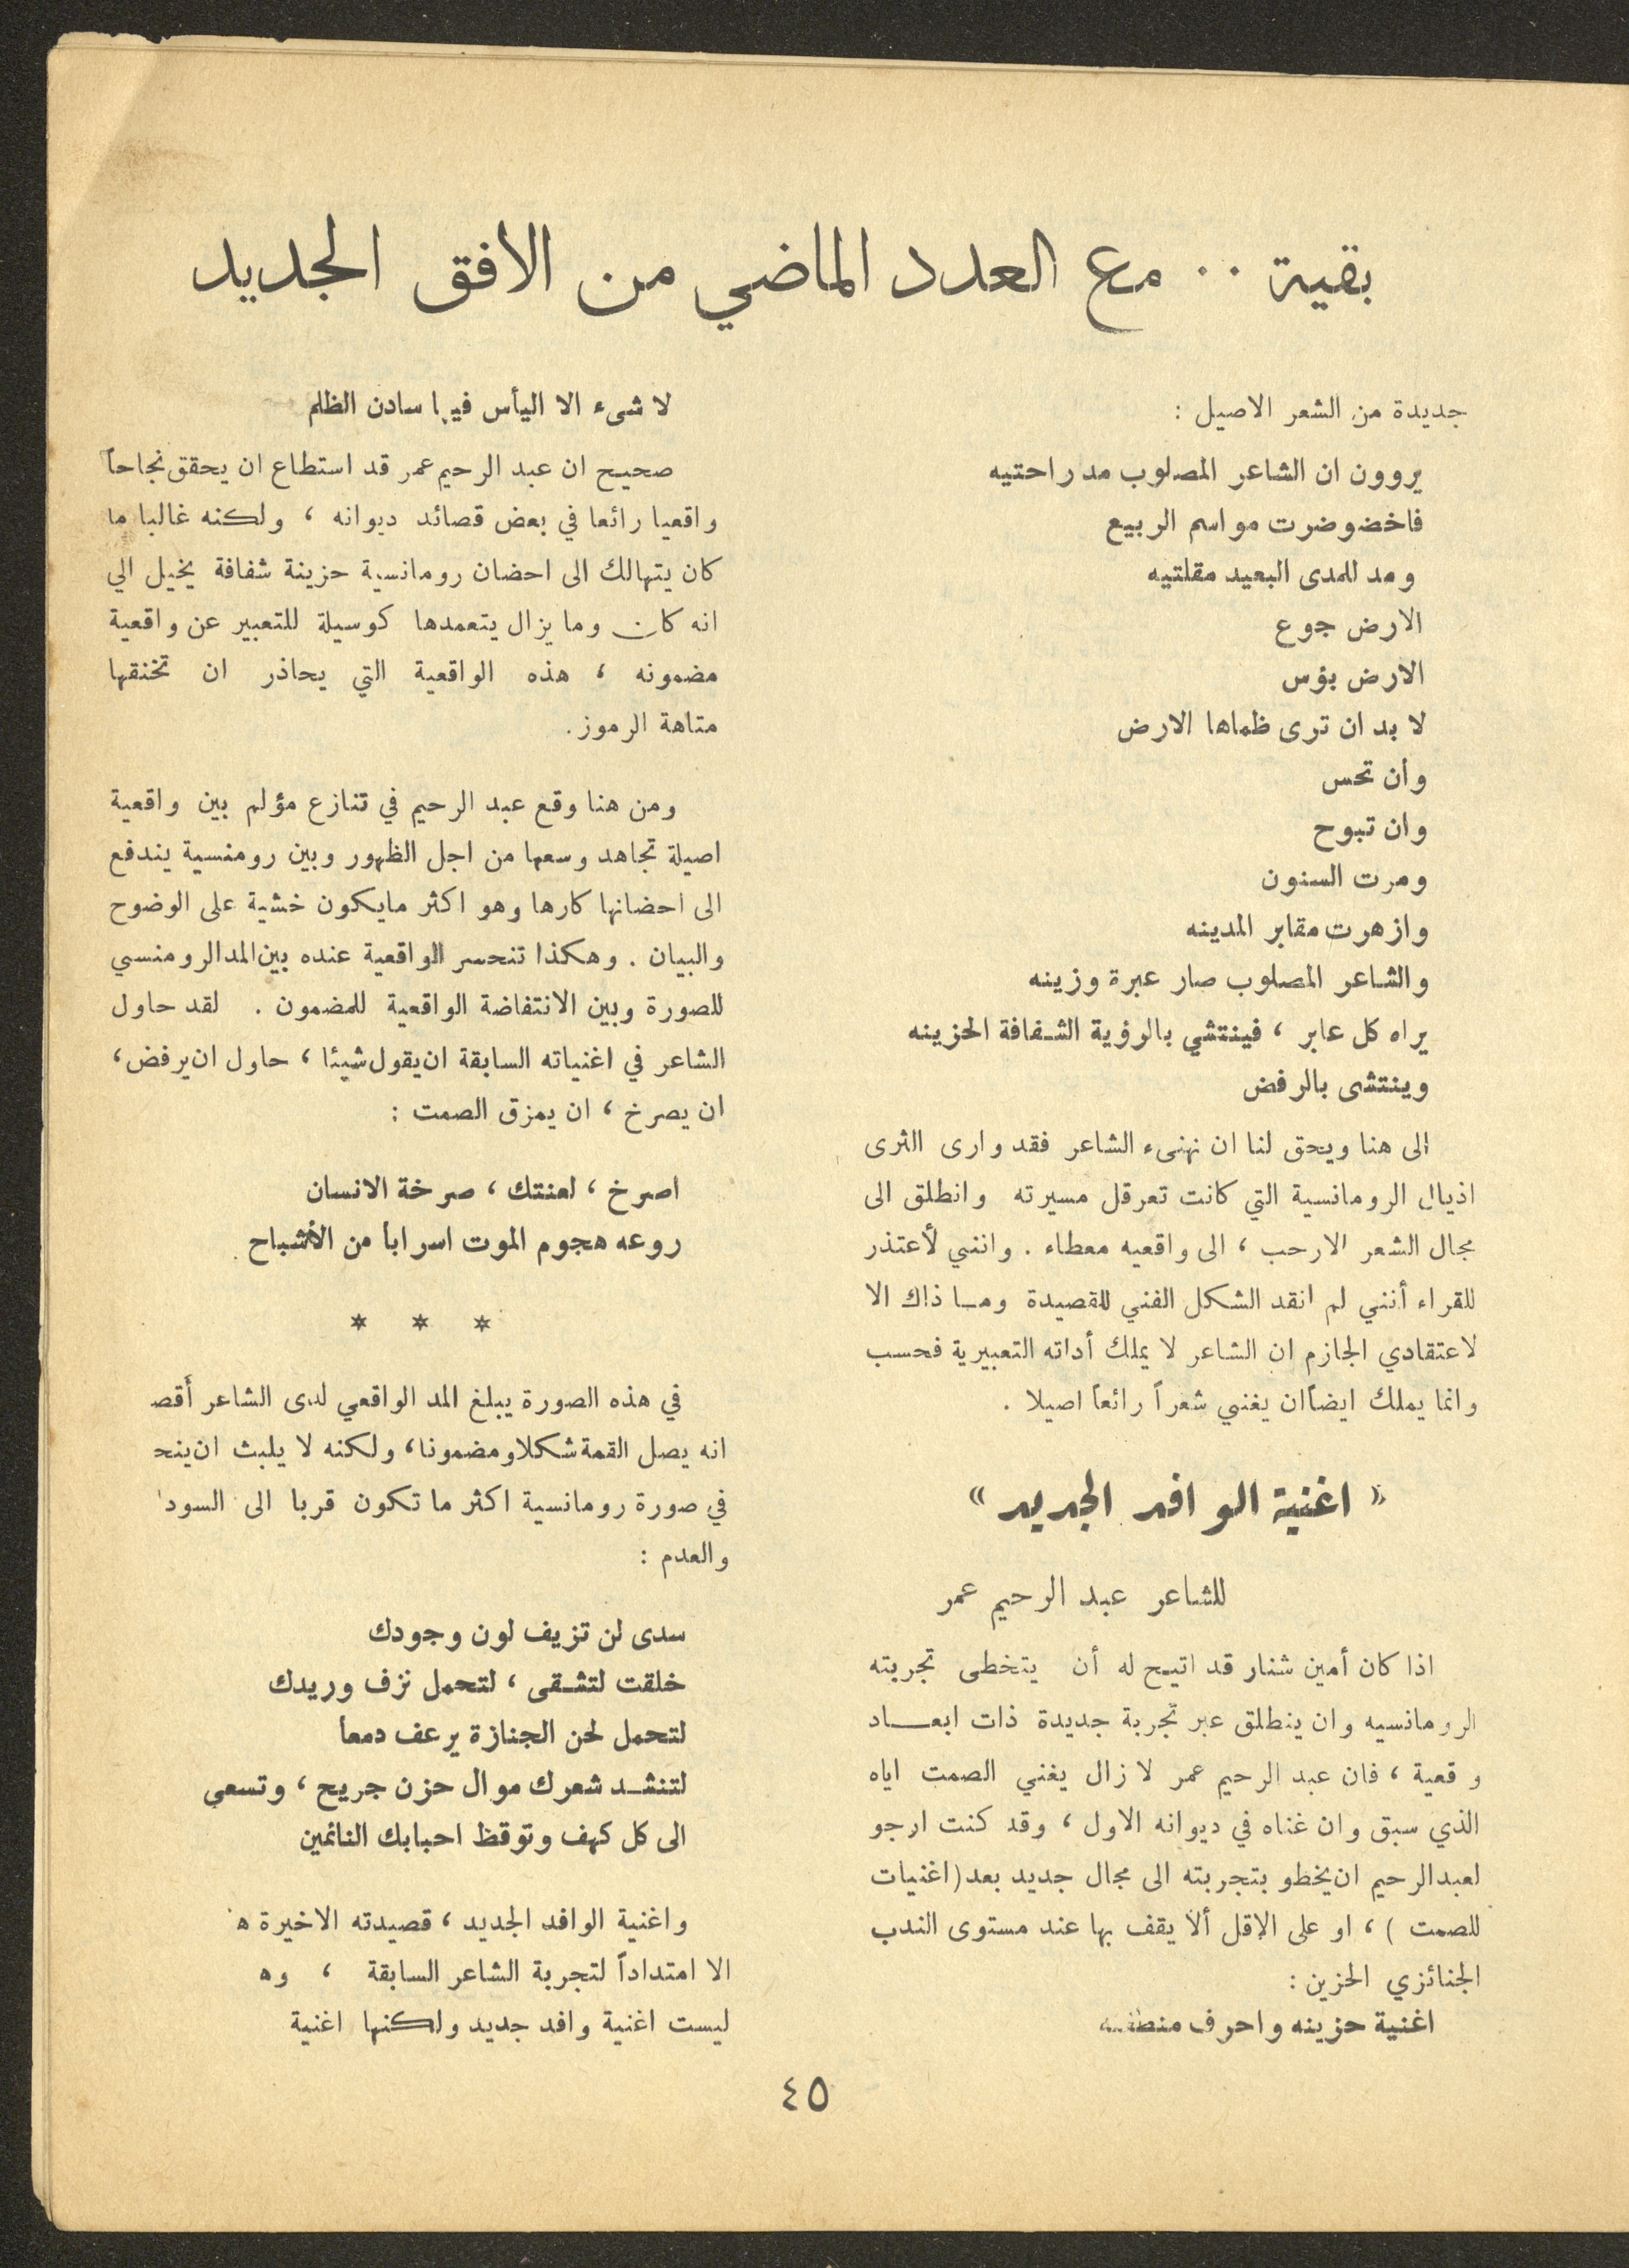 بقية .. مع العدد الماضي من الافق الجديد
جديدة من الشعر الاصيل :
يروون ان الشاعر المصلوب مد راحتيه
فاخضوضرت مواسم الربيع
ومد للمدى البعيد مقلتيه
الارض جوع
الارض بؤس
لا بد ان ترى ظماها الارض
وأن تحس
وان تبوح
ومرت السنون
وازهرت مقابر المدينه
والشاعر المصلوب صار عبرة وزينه
يراه كل عابر ، فينتشي بالرؤية الشفافة الحزينه
وينتشى بالرفض
الى هنا ويحق لنا ان نهنىء الشاعر فقد وارى الثرى
اذيال الرومانسية التي كانت تعرقل مسيرته وانطلق الى
مجال الشعر الارحب ، الى واقعيه معطاء . وانني لأعتذر
للقراء أنني لم انقد الشكل الفني للقصيدة وما ذاك الا
لاعتقادي الجازم ان الشاعر لا يملك أداته التعبيرية فحسب
وانما يملك ايضاً ان يغني شعراً رائعاً اصيلا .
« اغنية الوافد الجديد »
للشاعر عبد الرحيم عمر
اذا كان أمين شنار قد اتيح له أن يتخطى تجربته
الرومانسيه وان ينطلق عبر تجربة جديدة ذات ابعاد
وقعية ، فان عبد الرحيم عمر لا زال يغني الصمت اياه
الذي سبق وان غناه في ديوانه الاول ، وقد كنت ارجو
لعبدالرحيم ان يخطو بتجربته الى مجال جديد بعد (اغنيات
للصمت ) ، او على الاقل ألا يقف بها عند مستوى الندب
الجنائزي الحزين :
اغنية حزينه واحرف
لا شىء الا اليأس فيها سادن الظلم
صحيح ان عبد الرحيم عمر قد استطاع ان يحقق نجاحاً
واقعيا رائعا في بعض قصائد ديوانه ، ولكنه غالبا ما
كان يتهالك الى احضان رومانسية حزينة شفافة يخيل الي
انه كان وما يزال يتعمدها كوسيلة للتعبير عن واقعية
مضمونه ، هذه الواقعية التي يحاذر ان تخنقها
متاهة الرموز .
ومن هنا وقع عبد الرحيم في تنازع مؤلم بين واقعية
اصيلة تجاهد وسعها من اجل الظهور وبين رومنسية يندفع
الى احضانها كارها وهو اكثر مايكون خشية على الوضوح
والبيان . وهكذا تنحسر الواقعية عنده بين المد الرومنسي
للصورة وبين الانتفاضة الواقعية للمضمون . لقد حاول
الشاعر في اغنياته السابقة ان يقول شيئا ، حاول ان يرفض ،
ان يصرخ ، ان يمزق الصمت :
اصرخ ، لعنتك ، صرخة الانسان
روعه هجوم الموت اسراباً من الأشباح
* * *
في هذه الصورة يبلغ المد الواقعي لدى الشاعر أقص
انه يصل القمة شكلا ومضمونا ، ولكنه لا يلبث ان ينح
في صورة رومانسية اكثر ما تكون قربا الى السود
والعدم :
سدى لن تزيف لون وجودك
خلقت لتشقى ، لتحمل نزف وريدك
لتحمل لحن الجنازة يرعف دمعاً
لتنشد شعرك موال حزن جريح ، وتسعى
الى كل كهف وتوقظ احبابك النائمين
واغنية الوافد الجديد ، قصيدته الاخيرة ه
الا امتداداً لتجربة الشاعر السابقة ، وه
ليست اغنية وافد جديد ولكنها اغنية
٤٥